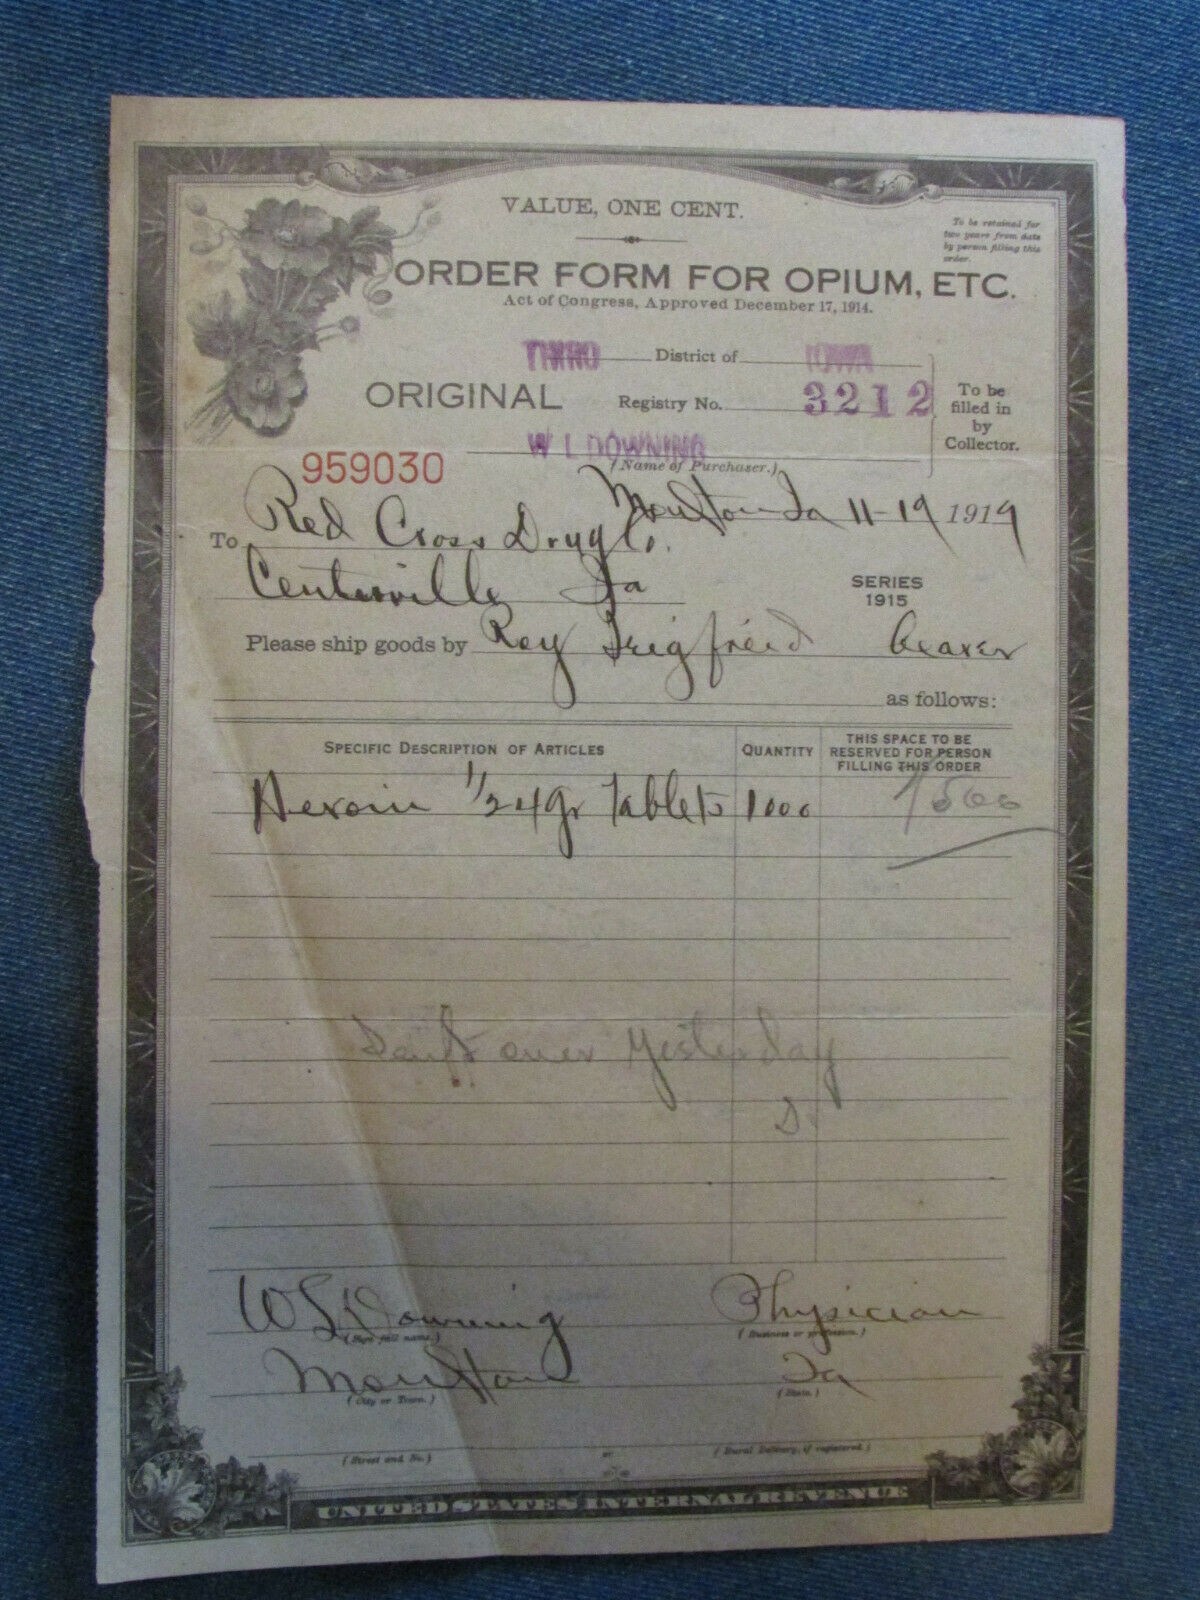 VALUE, ONE CENT.
To be retained for
two years from date
by person filling this
order.
ORDER FORM FOR OPIUM, ETC.
Act of Congress, Approved December 17, 1914.
THIRD District of IOWA
ORIGINAL Registry No. 3212
To be
filled in
by
Collector.
W L DOWNING
(Name of Purchaser.)
959030
Moulton Ia 11-19 1919
To Red Cross Drug Co.
Centerville Ia
SERIES
1915
Please ship goods by Roy
as follows:
SPECIFIC DESCRIPTION OF ARTICLES QUANTITY THIS SPACE TO BE
RESERVED FOR PERSON
FILLING THIS ORDER
Heroin 1/24 gr Tablets 1000
over Yesterday
D.
W L Downing Physician
(Sign full name.) (Business or profession.)
Moulton Ia
(City or Town.) (State.)
(Street and No.) or (Rural Delivery, if registered.)
UNITED STATES INTERNAL REVENUE